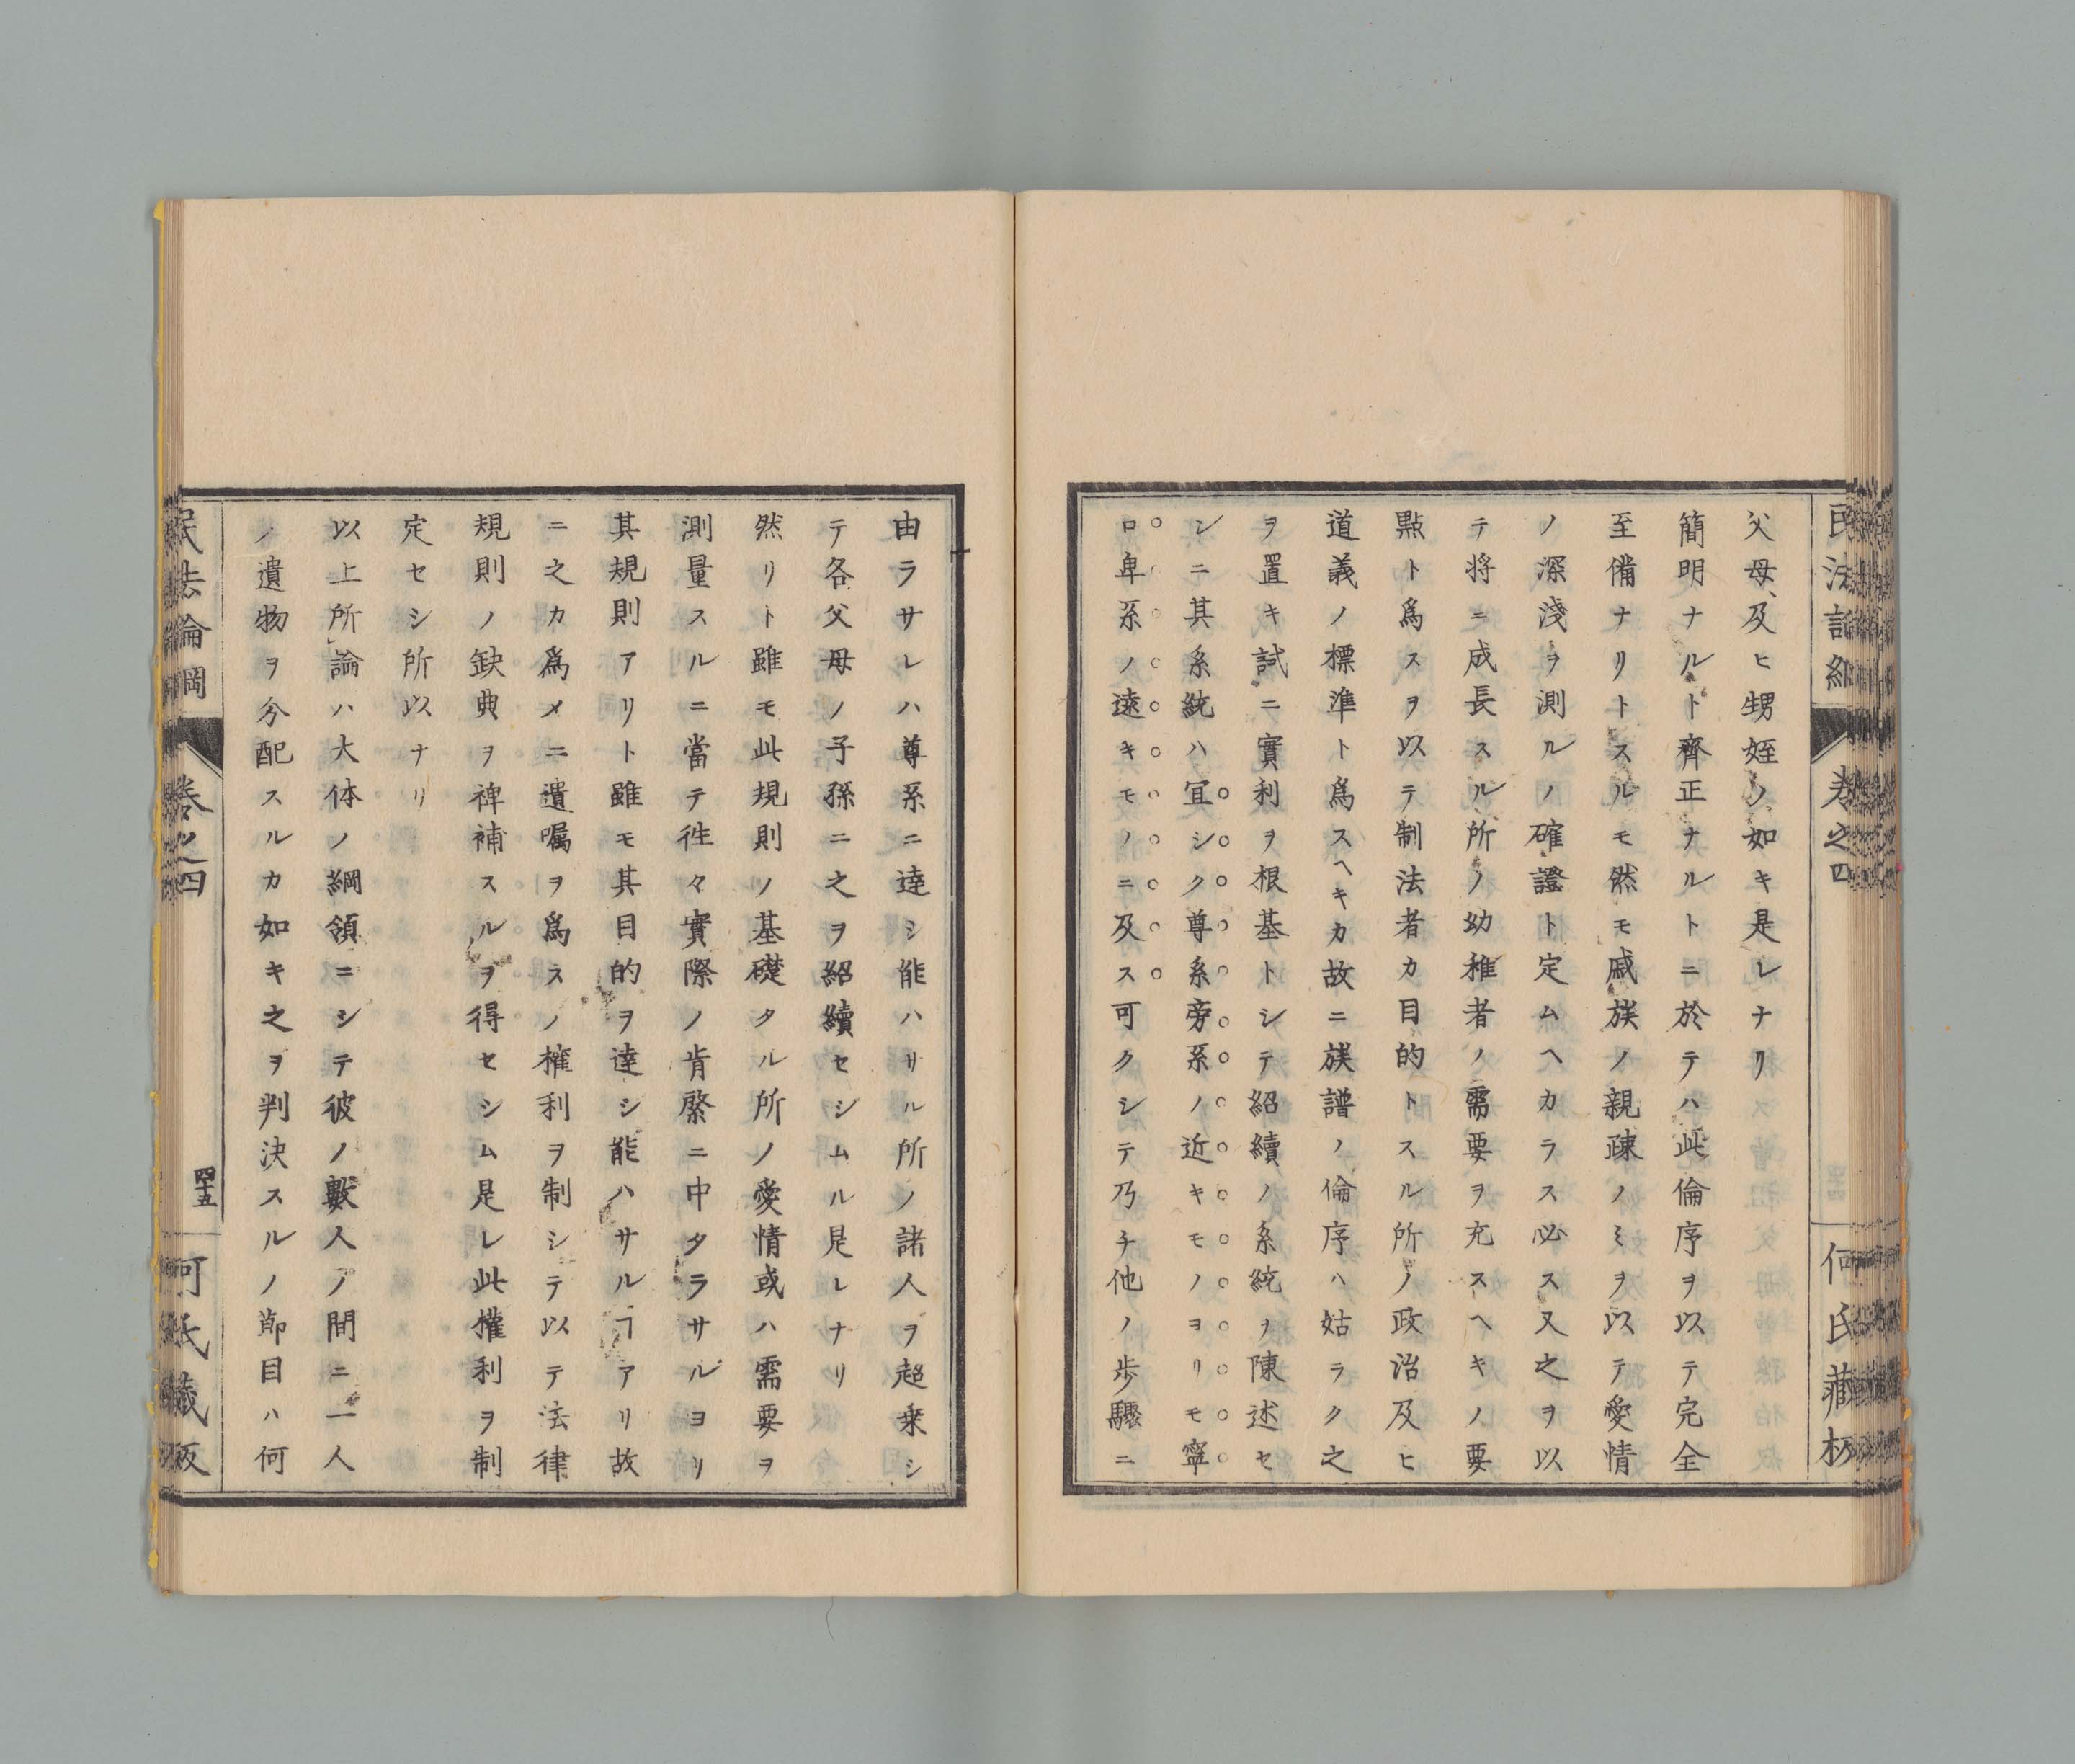 父母、及ヒ甥姪ノ如キ是レナリ
簡明ナルト齊正ナルトニ於テハ此倫序ヲ以テ完全
至備ナリトスルモ然モ戚族ノ親疎ノミヲ以テ愛情
ノ深淺ヲ測ルノ確證ト定ムヘカラス必ス又之ヲ以
テ将ニ成長スル所ノ幼稚者ノ需要ヲ充スヘキノ要
點ト爲スヲ以テ制法者カ目的トスル所ノ政治及ヒ
道義ノ標準ト爲スヘキカ故ニ族譜ノ倫序ハ姑ラク之
ヲ置キ試ニ實利ヲ根基トシテ紹續ノ系統ヲ陳述セ
ンニ其系統ハ宜シク尊系旁系ノ近キモノヨリモ寧
ロ卑系ノ遠キモノニ及ス可クシテ乃チ他ノ歩驟ニ
由ラサレハ尊系ニ達シ能ハサル所ノ諸人ヲ超乗シ
テ各父母ノ子孫ニ之ヲ紹續セシムル是レナリ
然リト雖モ此規則ノ基礎タル所ノ愛情或ハ需要ヲ
測量スルニ當テ徃々實際ノ肯綮ニ中タラサルヨリ
其規則アリト雖モ其目的ヲ達シ能ハサルヿアリ故
ニ之カ爲メニ遺囑ヲ爲スノ權利ヲ制シテ以テ法律
規則ノ缺典ヲ裨補スルヲ得セシム是レ此權利ヲ制
定セシ所以ナリ
以上所論ハ大体ノ綱領ニシテ彼ノ數人ノ間ニ一人
ノ遺物ヲ分配スルカ如キ之ヲ判決スルノ節目ハ何
民法論綱
卷之四
四十五
何氏藏板